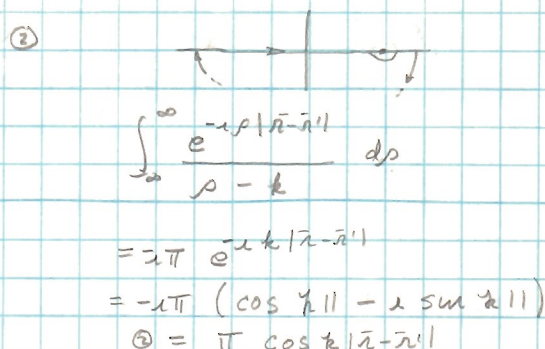 ②
∫_{-∞}^{∞} e^{-ip|r̄-r̄'|} / (p - k) dp
= -iπ e^{-ik|r̄-r̄'|}
= -iπ (cos k|| - i sin k||)
② = π cos k|r̄-r̄'|